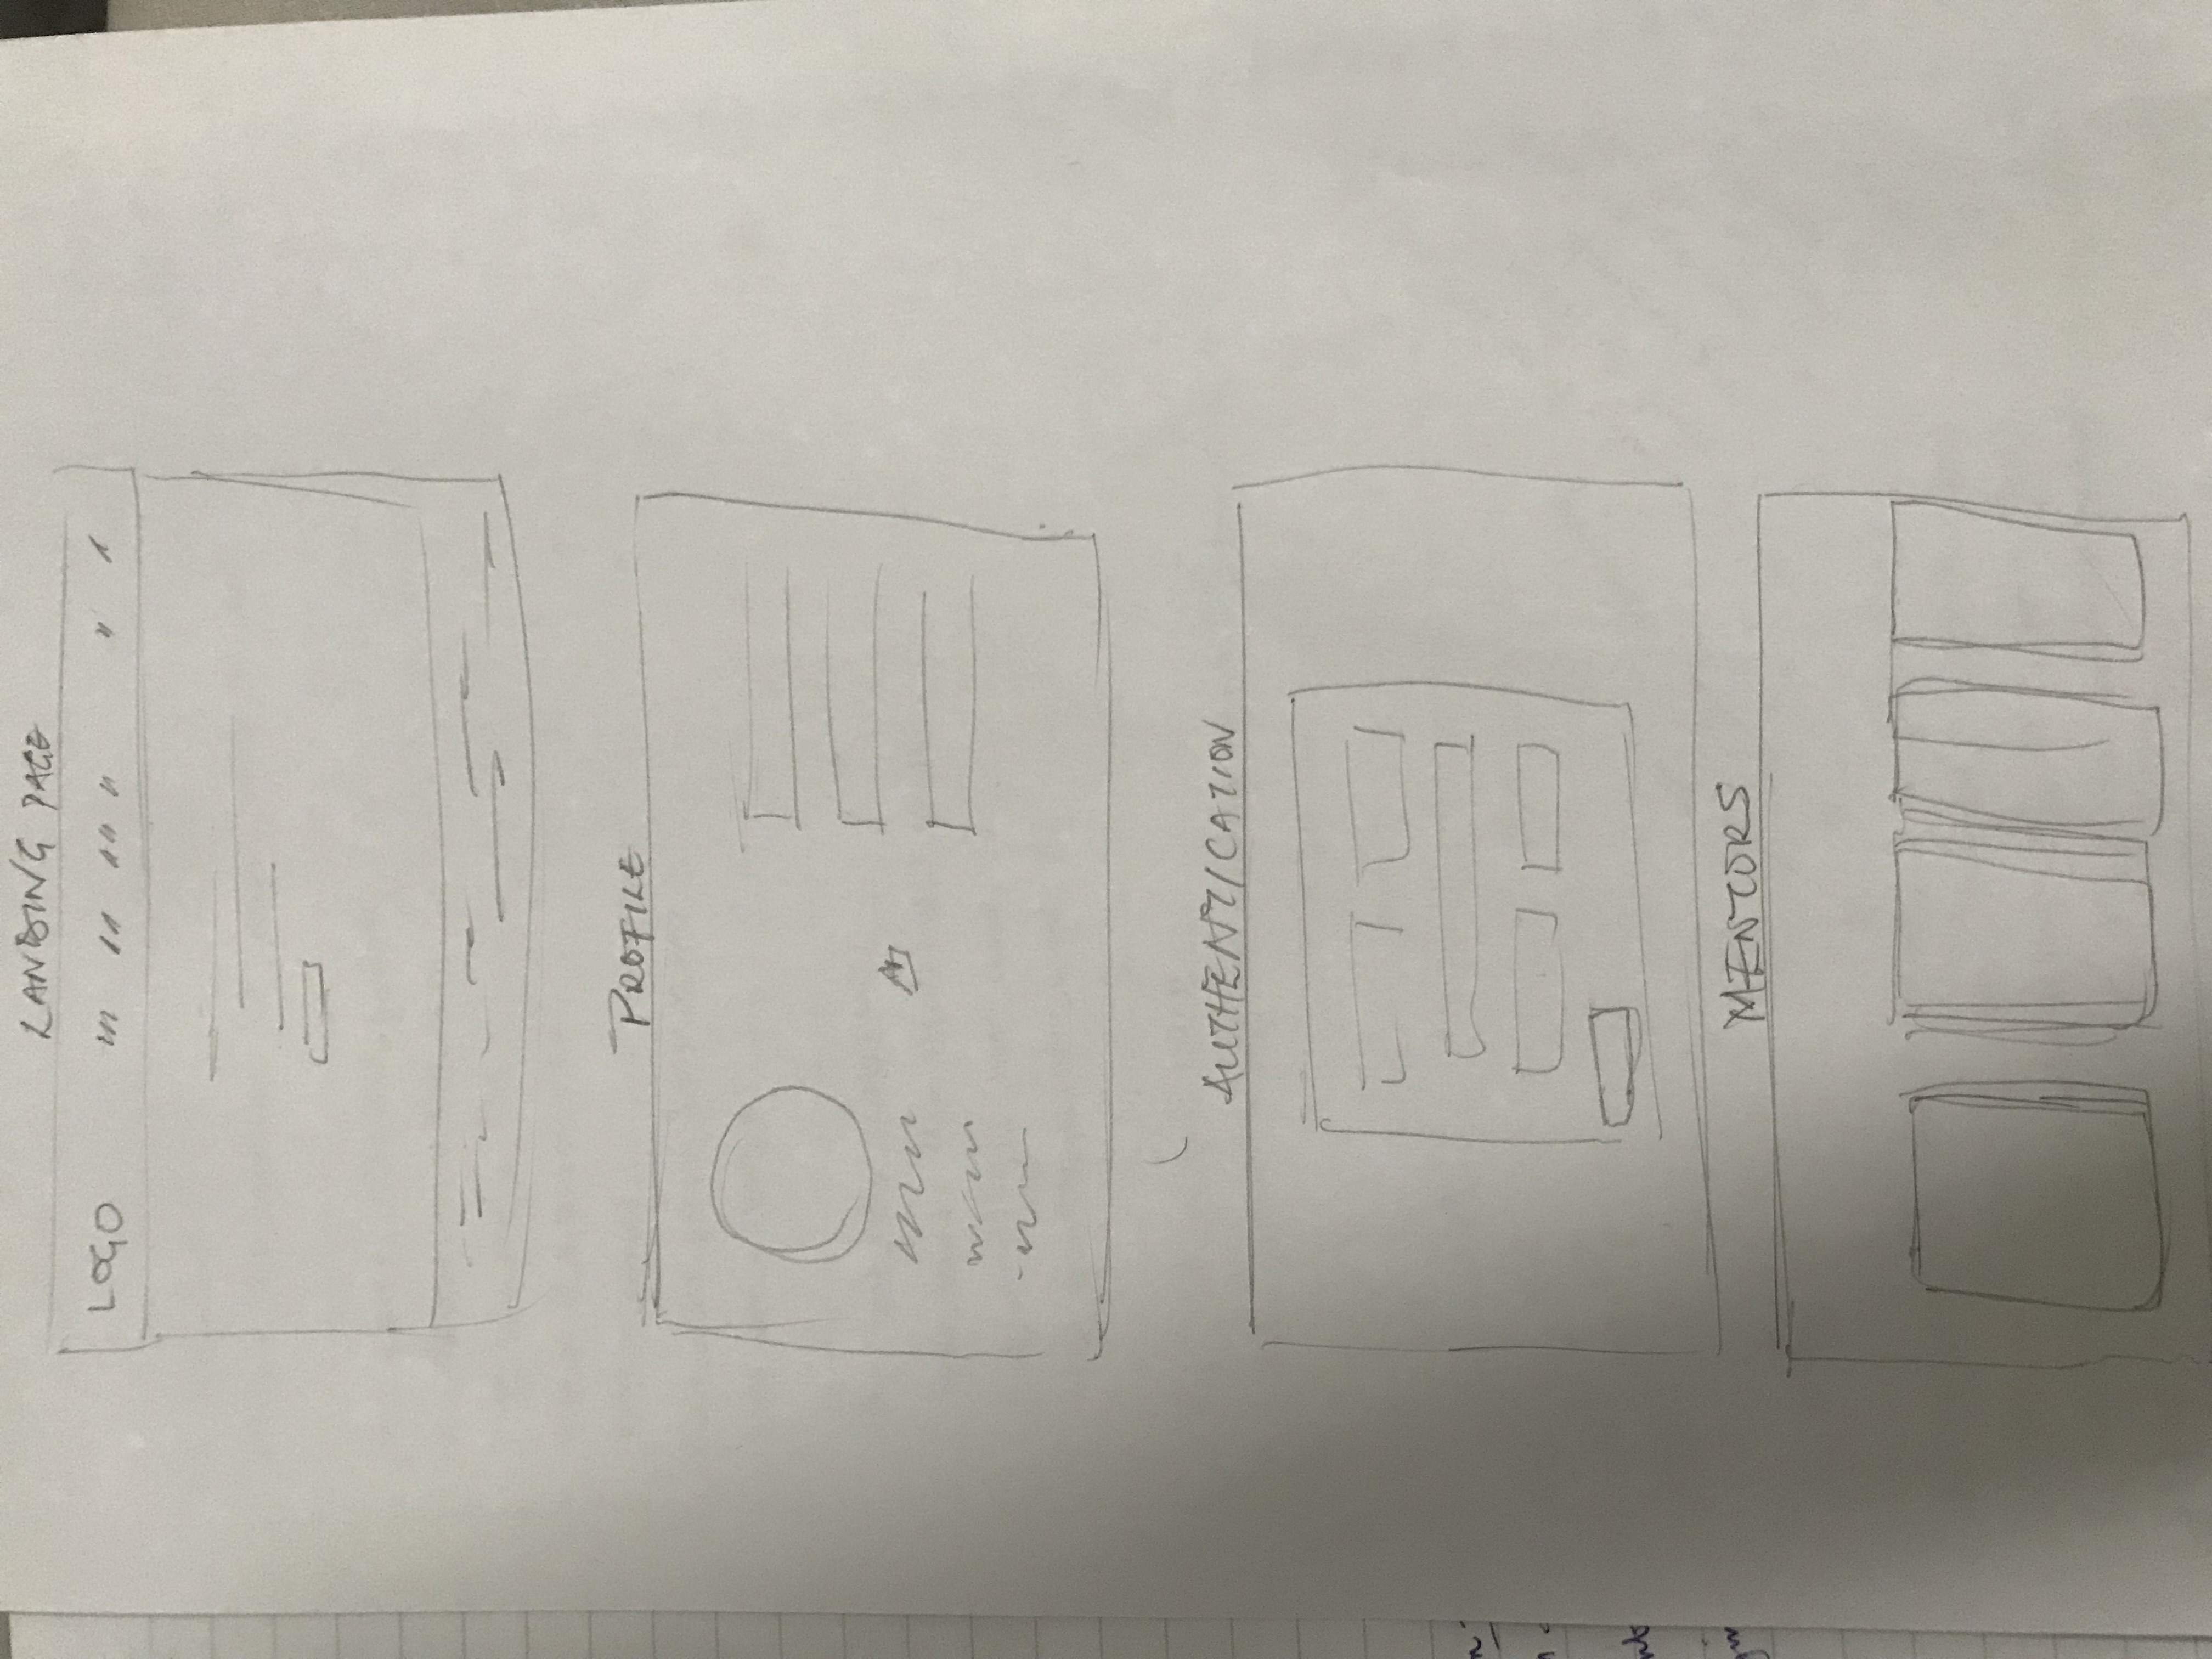 LANDING PAGE
LOGO
PROFILE
AUTHENTICATION
MENTORS